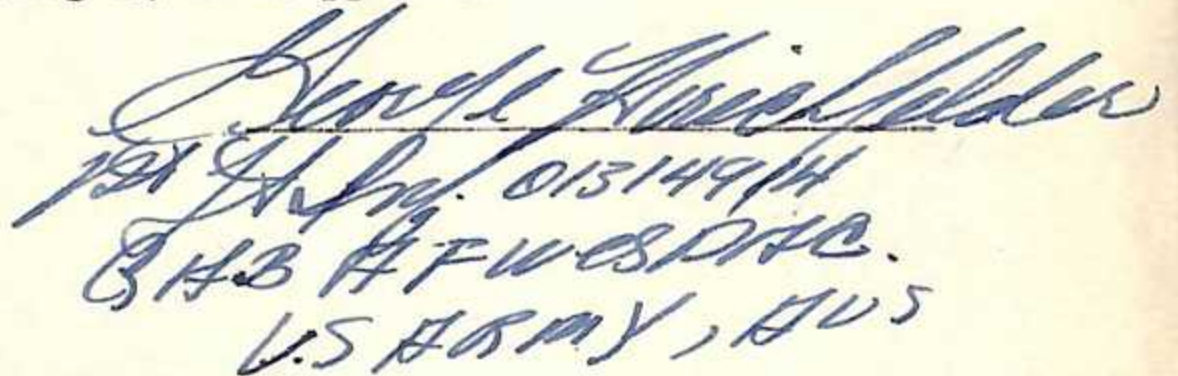 George
1st Lt Inf. 01314914
AFWESPAC.
U.S ARMY, AUS